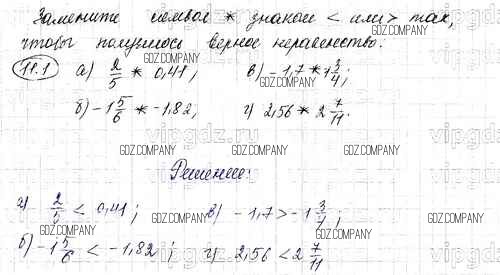 Замените символ * знаком < или > так,
чтобы получилось верное неравенство.
11.1 а) 2/5 * 0,41; в) -1,7 * 1 3/4;
б) -1 5/6 * -1,82, г) 2,56 * 2 7/11.
Решение:
а) 2/5 < 0,41; в) -1,7 > -1 3/4;
б) -1 5/6 < -1,82; г) 2,56 < 2 7/11
GDZ.COMPANY
vipgdz.ru